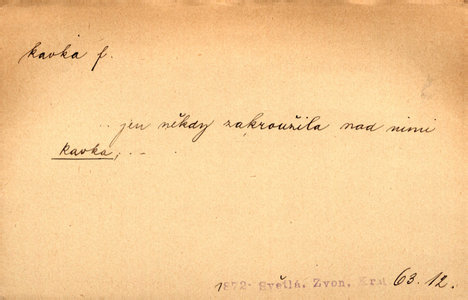 kavka f.
.. jen někdy zakroužila nad nimi
kavka, ...
1872: Světlá, Zvon. Král. 63. 12.